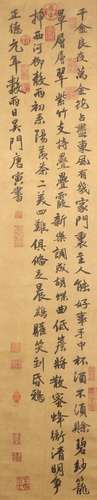 千金良夜萬金花占盡東風有幾家門裏主人能好事手中杯酒不須賒碧紗籠
罩層層翠紫竹支持疊疊霞新樂調成胡蝶曲低簷將散蜜蜂衙清明爭
插西河柳穀雨初來陽羨茶二美四難俱備足晨鷄懽笑到昏鴉
正德元年穀雨日吳門唐寅書